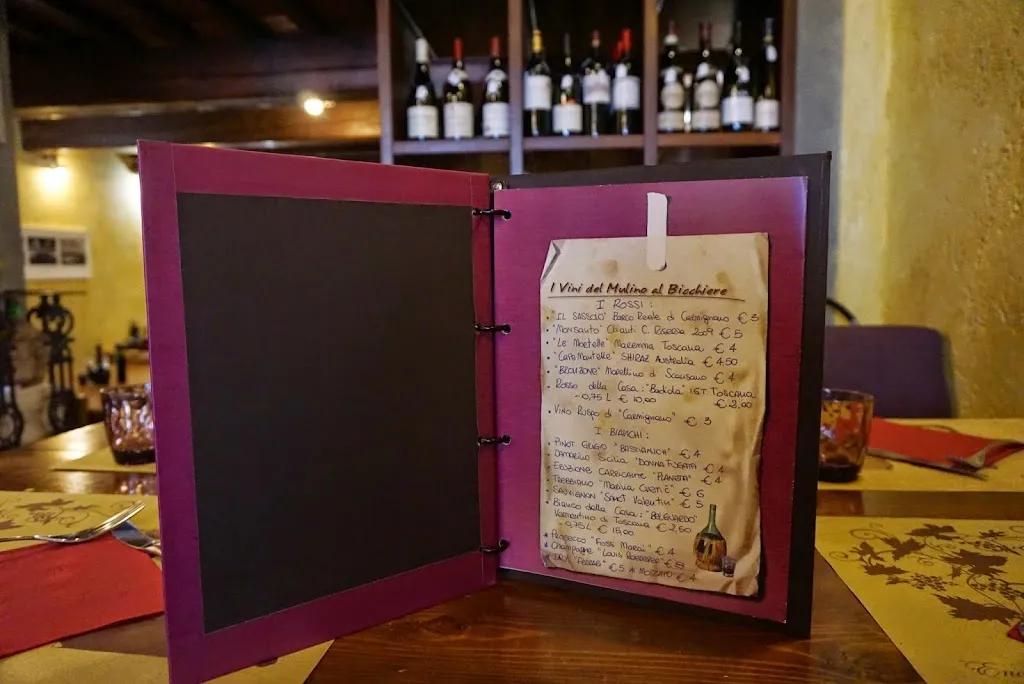 I Vini del Mulino al Bicchiere
I ROSSI :
• "IL SASSOLO" Barco Reale di Carmignano € 3
• "MONSANTO" Chianti C. Riserva 2009 € 5
• "LE MORTELLE" Maremma Toscana € 4
• "CAPO MANTELLE" SHIRAZ Australia € 4,50
• Morellino di Scansano € 4
• Rosso della Casa : "Badiola" I.G.T. TOSCANA
- 0,75 L € 10,00 € 2,00
• VINO RUSPO di "Carmignano" € 3
I BIANCHI :
• PINOT GRIGIO € 4
Sicilia "DONNA FUGATA" € 4
"PLANETA" € 4
• TREBBIANO "Marina Cvetic" € 6
• SAUVIGNON "SANCT Valentin" € 5
• Bianco della Casa :
Vermentino di Toscana € 2,50
- 0,75 L € 15,00
• Prosecco € 4
• Champagne "Louis Roederer" € 8
"FERRARI" € 5 € 4